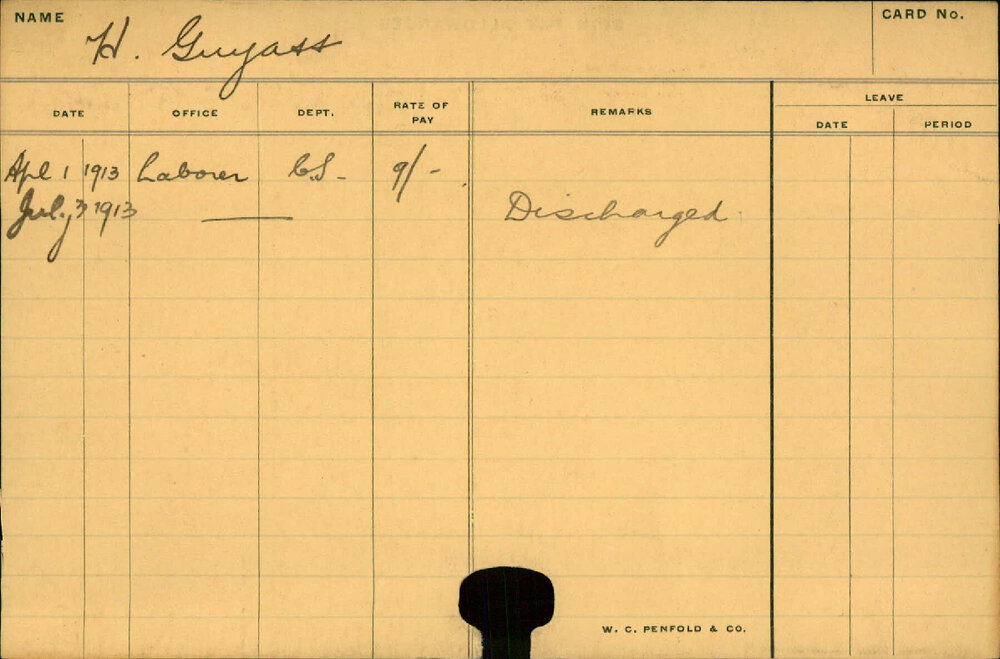 NAME H. Guyass CARD No.
LEAVE
DATE OFFICE DEPT. RATE OF PAY REMARKS DATE PERIOD
Apl 1 1913 Laborer C.S- 9/-
July 3 1913 — Discharged
W. C. PENFOLD & CO.